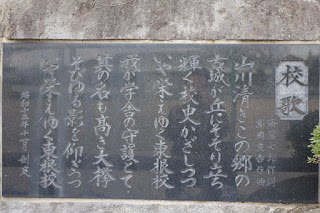 校歌
七郎作詞
作曲
山川清きこの郷の
城が丘にそそり立ち
輝く歴史かざしつつ
いや栄えゆく東根校
我が学舎の守護とて
其の名も高き大欅
そびゆる影を仰ぎつつ
いや栄えゆく東根校
昭和十五年十一月 制定